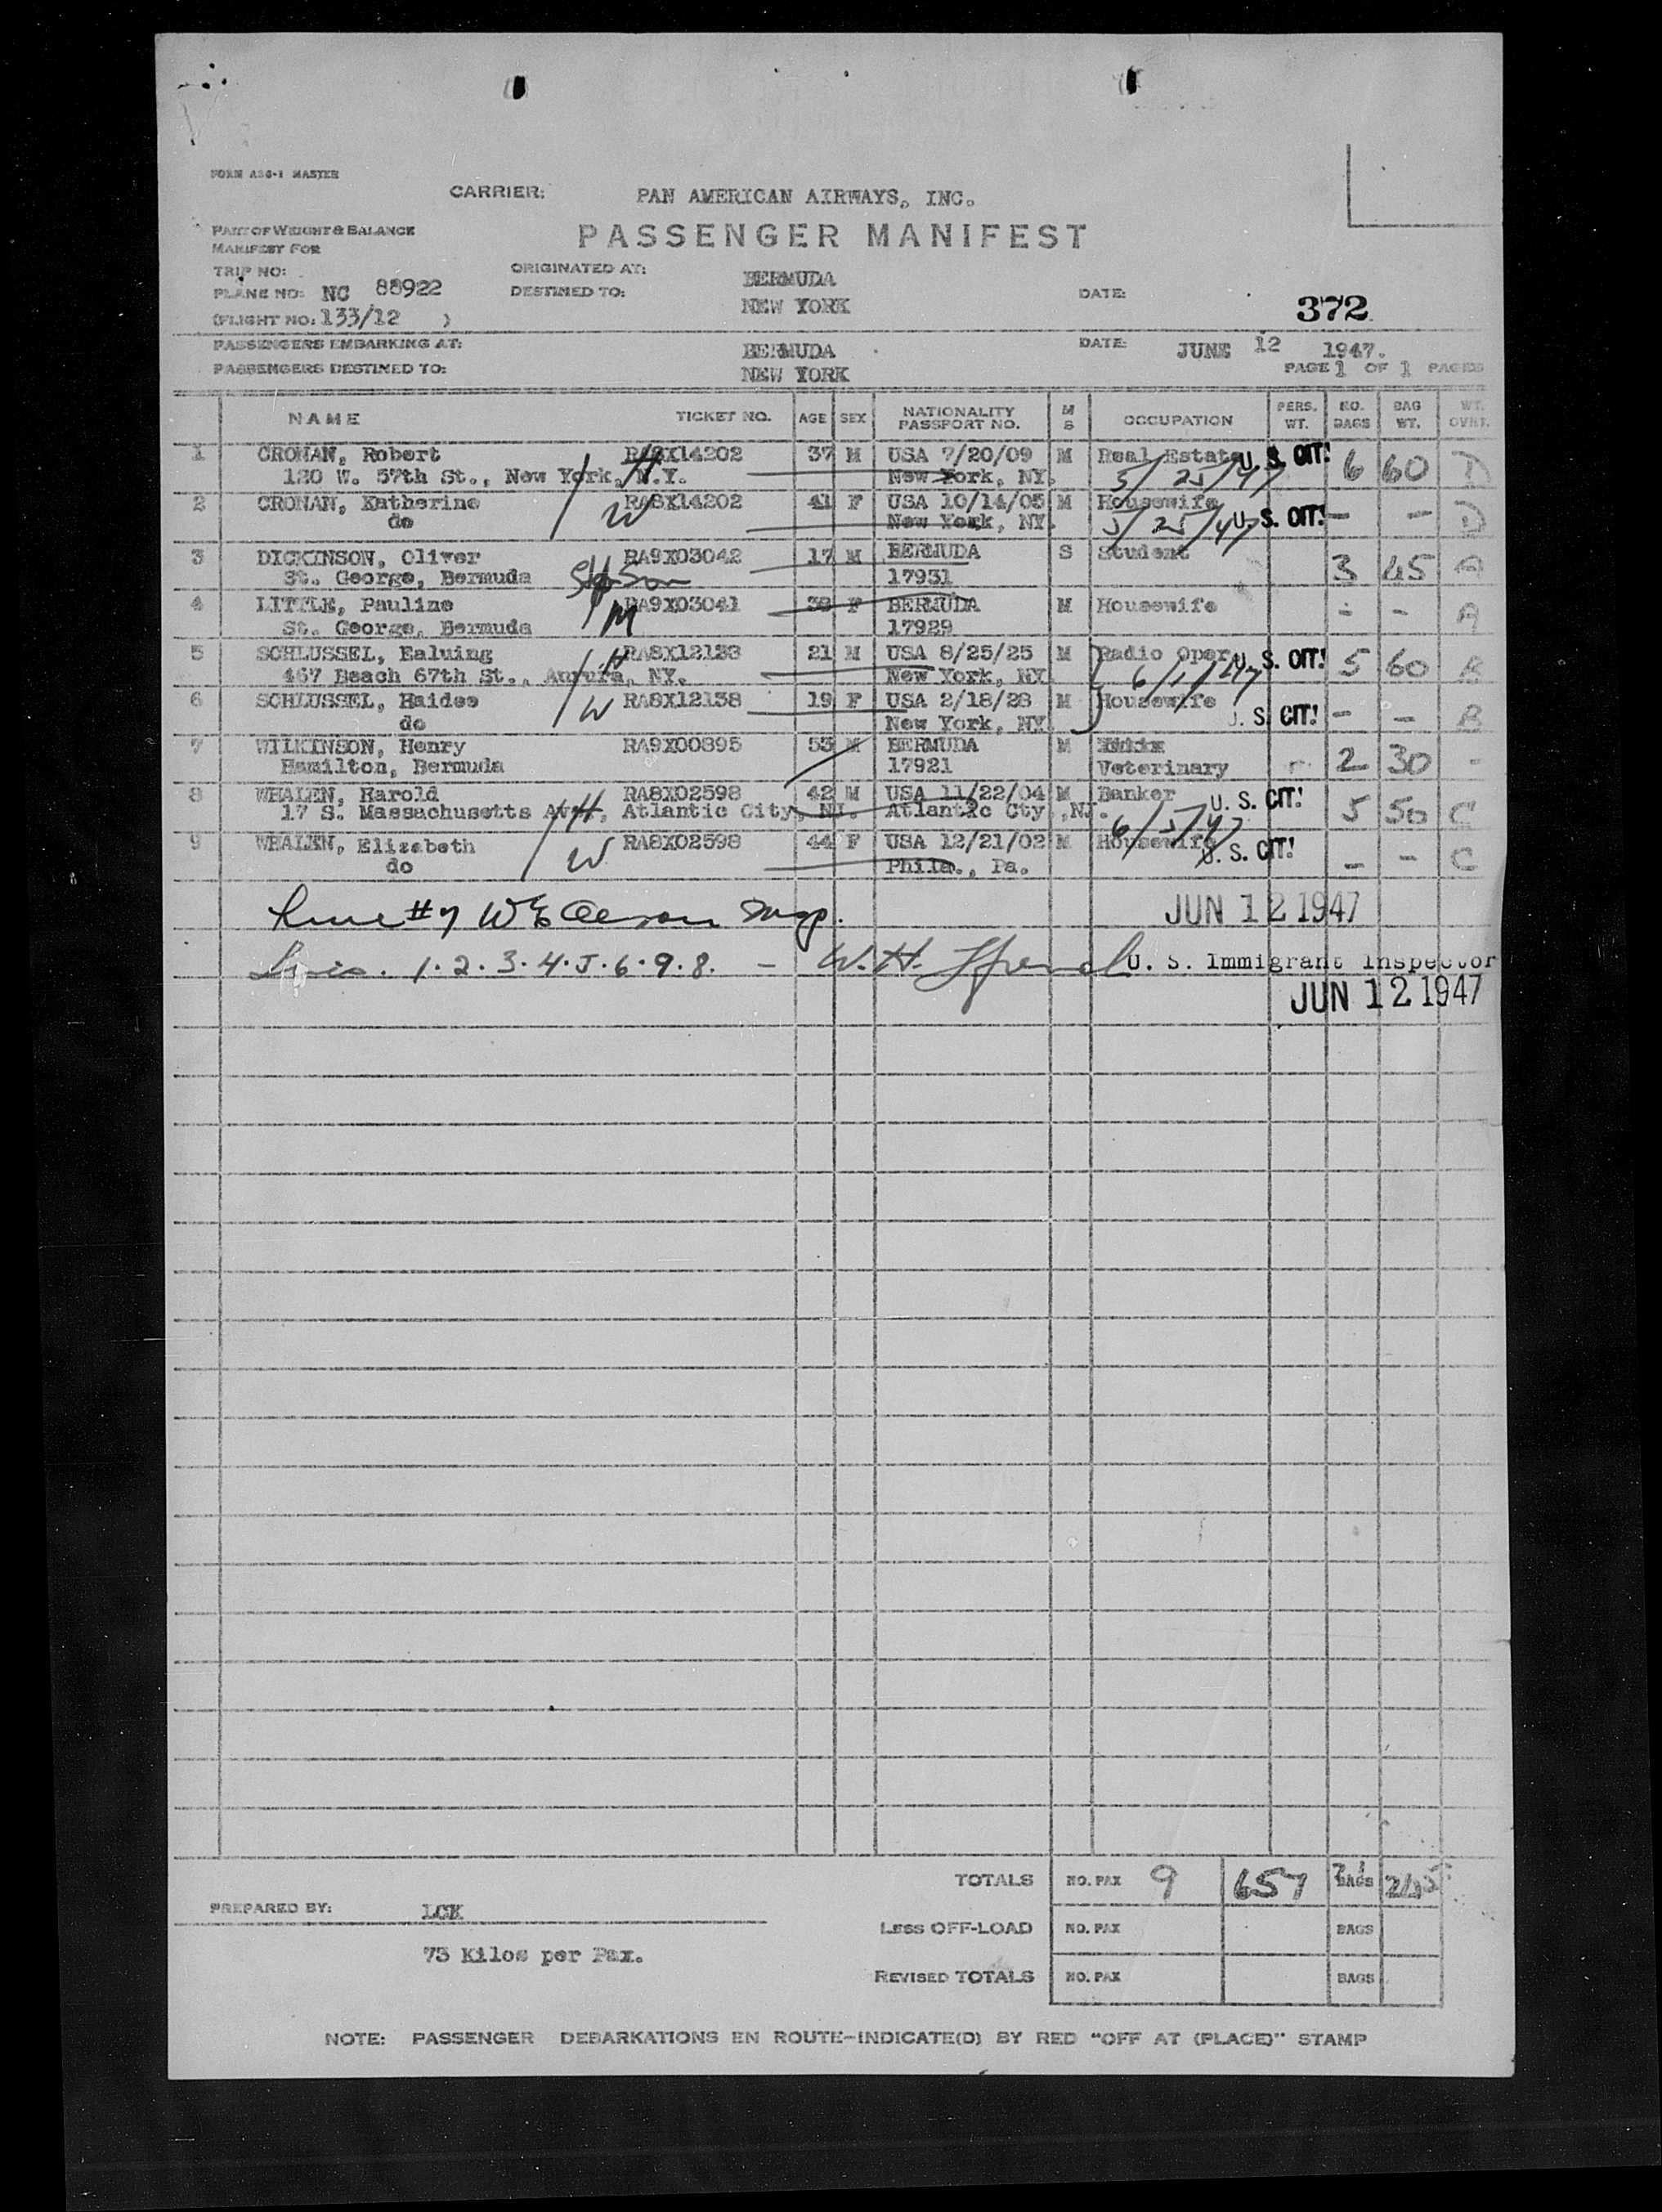 FORM ASG-1 MASTER
CARRIER: PAN AMERICAN AIRWAYS, INC.
PART OF WEIGHT & BALANCE
MANIFEST FOR
PASSENGER MANIFEST
TRIP NO:
ORIGINATED AT: BERMUDA
PLANE NO: NC 88922
DESTINED TO: NEW YORK
DATE: 372
(FLIGHT NO: 133/12 )
PASSENGERS EMBARKING AT: BERMUDA DATE: JUNE 12 1947.
PASSENGERS DESTINED TO: NEW YORK PAGE 1 OF 1 PAGES
NAME TICKET NO. AGE SEX NATIONALITY PASSPORT NO. M S OCCUPATION PERS. WT. NO. BAGS BAG WT. WT. OVRT.
1 CRONAN, Robert RA8X14202 37 M USA 7/20/09 M Real Estate U. S. CIT! 6 60 D
120 W. 57th St., New York, N.Y. H New York, NY. 5/25/47
2 CRONAN, Katherine W RA8X14202 41 F USA 10/14/05 M Housewife U. S. CIT! - - D
do New York, NY. 5/25/47
3 DICKINSON, Oliver RA9X03042 17 M BERMUDA S Student 3 45 A
St. George, Bermuda Son 17931
4 LITTLE, Pauline RA9X03041 38 F BERMUDA M Housewife - - A
St. George, Bermuda M 17929
5 SCHLUSSEL, Ealuing H RA8X12138 21 M USA 8/25/25 M Radio Oper. U. S. CIT! 5 60 B
467 Beach 67th St., NY. New York, NY. 6/1/47
6 SCHLUSSEL, Haidee W RA8X12138 19 F USA 2/18/28 M Housewife U. S. CIT! - - B
do New York, NY.
7 WILKINSON, Henry RA9X00895 53 M BERMUDA M 2 30 -
Hamilton, Bermuda 17921 Veterinary
8 WHALEN, Harold RA8X02598 42 M USA 11/22/04 M Banker U. S. CIT! 5 50 C
17 S. Massachusetts Ave. H, Atlantic City, NJ. Atlantic Cty,NJ. 6/5/47
9 WHALEN, Elizabeth W RA8X02598 44 F USA 12/21/02 M Housewife U. S. CIT! - - C
do Phila., Pa.
#7 Insp. JUN 12 1947
Lines. 1.2.3.4.5.6.9.8. - W.H. U. S. Immigrant Inspector
JUN 12 1947
TOTALS NO. PAX 9 657 21 BAGS 245
PREPARED BY: LCK
LESS OFF-LOAD NO. PAX BAGS
73 Kilos per Pax.
REVISED TOTALS NO. PAX BAGS
NOTE: PASSENGER DEBARKATIONS EN ROUTE-INDICATE(D) BY RED "OFF AT (PLACE)" STAMP